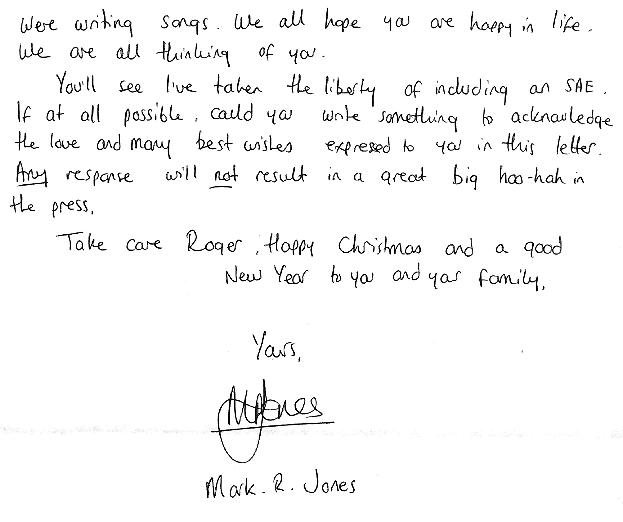 Were writing songs. We all hope you are happy in life.
We are all thinking of you.
You'll see I've taken the liberty of including an SAE.
If at all possible, could you write something to acknowledge
the love and many best wishes expressed to you in this letter.
Any response will not result in a great big hoo-hah in
the press.
Take care Roger, Happy Christmas and a good
New Year to you and your family,
Yours,
MJones
Mark. R. Jones